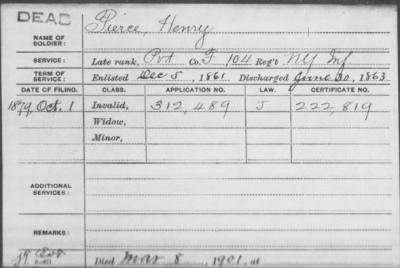 DEAD
NAME OF SOLDIER: Pierce, Henry
SERVICE: Late rank, Pvt Co. F 104 Reg't NY Inf
TERM OF SERVICE: Enlisted Dec 5, 1861. Discharged June 30, 1863.
DATE OF FILING. CLASS. APPLICATION NO. LAW. CERTIFICATE NO.
1879, Oct. 1 Invalid, 312,489 J 222,819
Widow,
Minor,
ADDITIONAL SERVICES:
REMARKS:
Died Mar 8, 1901, at